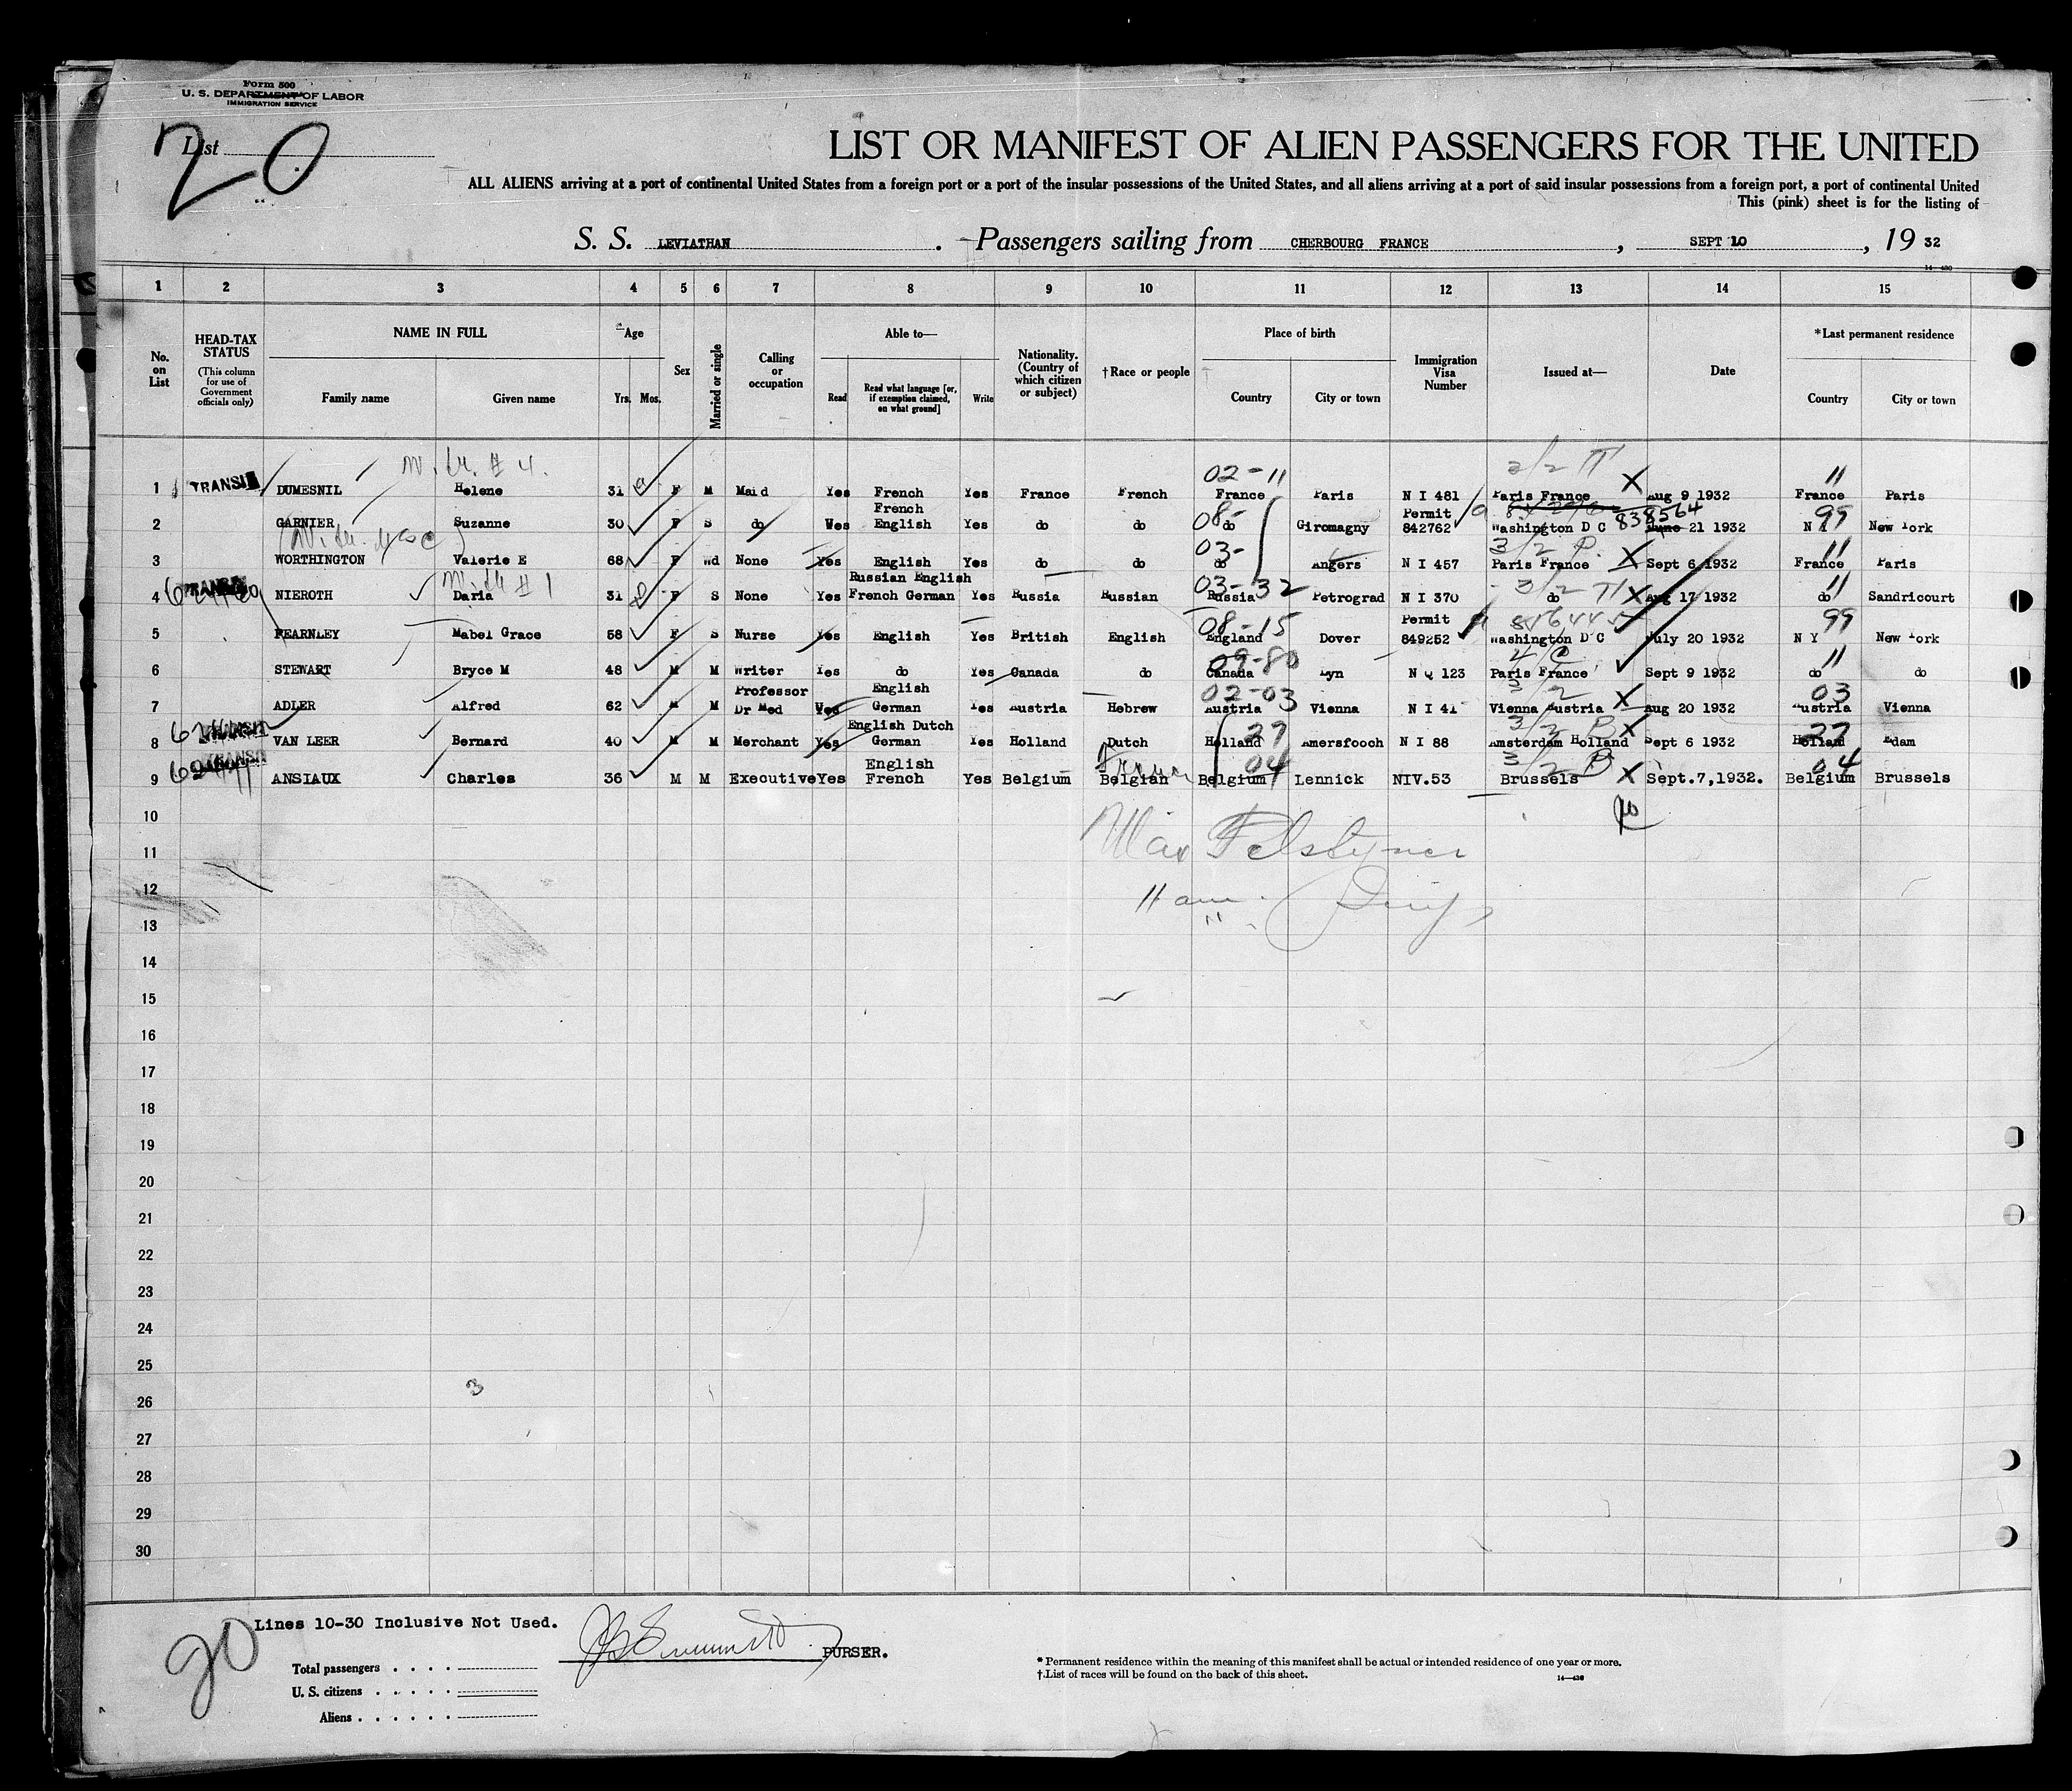 Form 500
U. S. DEPARTMENT OF LABOR
IMMIGRATION SERVICE
List
20
LIST OR MANIFEST OF ALIEN PASSENGERS FOR THE UNITED
ALL ALIENS arriving at a port of continental United States from a foreign port or a port of the insular possessions of the United States, and all aliens arriving at a port of said insular possessions from a foreign port, a port of continental United
This (pink) sheet is for the listing of
S. S. LEVIATHAN . Passengers sailing from CHERBOURG FRANCE , SEPT 10 , 19 32
14—430
1 2 3 4 5 6 7 8 9 10 11 12 13 14 15
No. on List
HEAD-TAX STATUS (This column for use of Government officials only)
NAME IN FULL
Family name
Given name
Age
Yrs. Mos.
Sex
Married or single
Calling or occupation
Able to—
Read
Read what language [or, if exemption claimed, on what ground]
Write
Nationality. (Country of which citizen or subject)
†Race or people
Place of birth
Country
City or town
Immigration Visa Number
Issued at—
Date
*Last permanent residence
Country
City or town
02-11 11
1 TRANSIT DUMESNIL Helene 31 F M Maid Yes French Yes France French France Paris N I 481 Paris France X Aug 9 1932 France Paris
French Permit 838564
2 GARNIER Suzanne 30 F S do Yes English Yes do do 08- do Giromagny 842762 Washington D C June 21 1932 99 N Y New York
03- 3/2 P. 11
3 WORTHINGTON Valerie E 68 F Wd None Yes English Yes do do do Angers N I 457 Paris France X Sept 6 1932 France Paris
Russian English 03-32 3/2 11
4 TRANSIT NIEROTH Daria 31 F S None Yes French German Yes Russia Russian Russia Petrograd N I 370 do X Aug 17 1932 do Sandricourt
08-15 Permit 99
5 FEARNLEY Mabel Grace 58 F S Nurse Yes English Yes British English England Dover 849252 Washington D C July 20 1932 N Y New York
09-80 11
6 STEWART Bryce M 48 M M Writer Yes do Yes Canada do Canada Lyn N Q 123 Paris France Sept 9 1932 do do
Professor English 02-03 3/2 03
7 ADLER Alfred 62 M M Dr Med Yes German Yes Austria Hebrew Austria Vienna N I 41 Vienna Austria X Aug 20 1932 Austria Vienna
English Dutch 27 3/2 27
8 TRANSIT VAN LEER Bernard 40 M M Merchant Yes German Yes Holland Dutch Holland Amersfooch N I 88 Amsterdam Holland X Sept 6 1932 Holland Adam
English 04 3/2 04
9 TRANSIT ANSIAUX Charles 36 M M Executive Yes French Yes Belgium Belgian Belgium Lennick NIV.53 Brussels X Sept.7,1932. Belgium Brussels
10
11
12
11 am.
13
14
15
16
17
18
19
20
21
22
23
24
25
3
26
27
28
29
30
20
Lines 10-30 Inclusive Not Used.
PURSER.
Total passengers
U. S. citizens
Aliens
* Permanent residence within the meaning of this manifest shall be actual or intended residence of one year or more.
†List of races will be found on the back of this sheet.
14—430